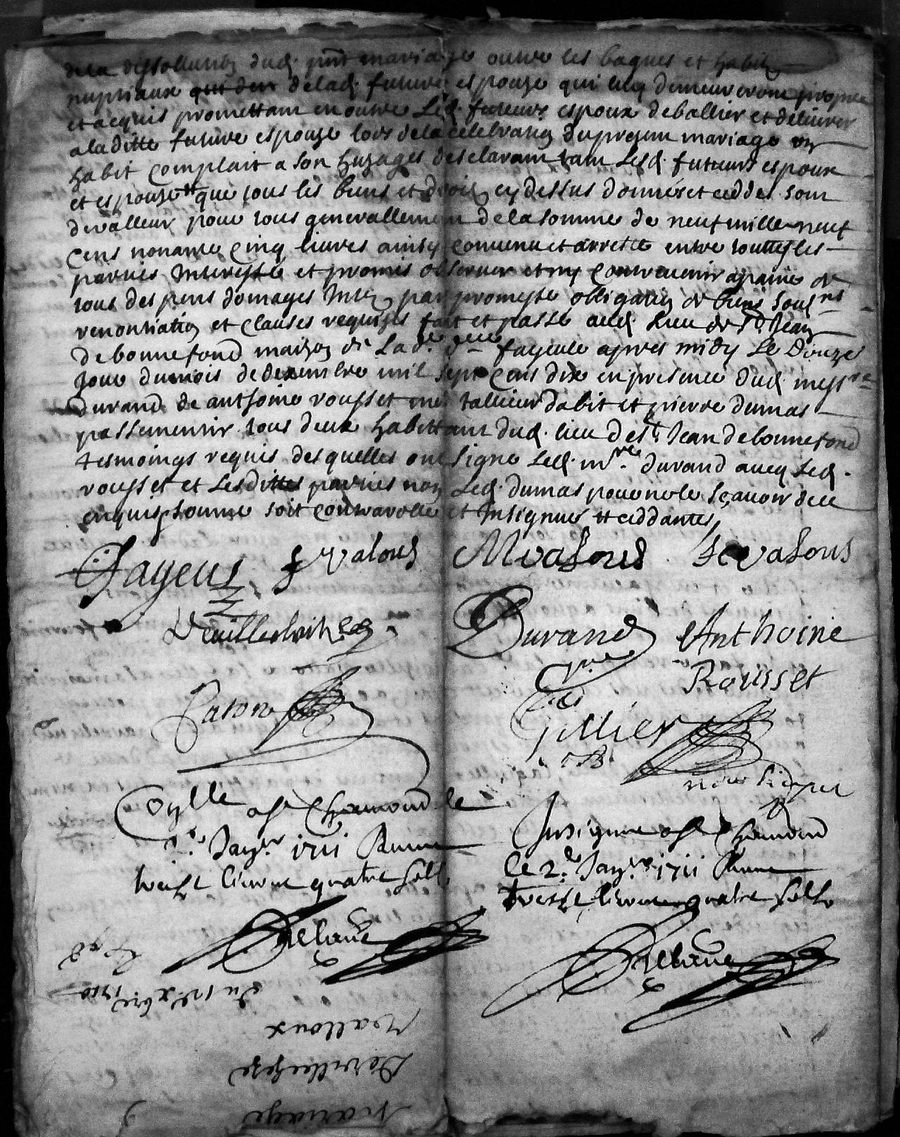 de la dissollution dud. pnt mariage outre les bagues et habits
nuptiaux de lad. future espouze qui luy demeureront propres
et acquis promettant en outre led. futeur espoux de bailler et delivrer
a laditte future espouze lors de la celebration du presant mariage un
habit complait a son huzages desclarant tant lesd. futeurs espoux
et espouze que tous les biens et droits cy dessus donnés et ceddes sont
de valleur pour tous generallement de la somme de neuf mille neuf
cens nonante cinq livres ainsy convenu et arresté entre touttes les
parties Interessée et promis observer et ny contrevenir a paine de
tous despens domages par promesse obligation de biens soubmis
renontiation et clauses requises fait et passé aud. lieu de St Jean
de bonnefond maison de lad. fayeule apres midy Le Douze
Jour du mois de dexembre mil sept cens dix en presence dud. messre
durand de anthome rousset me tallieur dabit et pierre dumas
passementir tous deux habittant dud. lieu de St Jean de bonnefond
tesmoings requis desquelles ont signé led. mre durand avecq led.
rousset et lesdittes parties non led. dumas pour ne le sçavoir de ce
enquis somme soit contrarollé et Insignué et ceddante,
Fayeul f valous Mvalous Jevalous
Devillechèze
Durand Anthoine
cure Rousset
Paton
Tillier
nore Royal
Collé a St Chamond le
2e Janvr 1711 Receu
treise livre quatre sols
Insignué a St Chamond
le 2e Janvr 1711 Receu
treise livre quatre sols
Dellarue
Dellarue
du 12e xbre 1710
Valloux
Devillecheze
Mariage